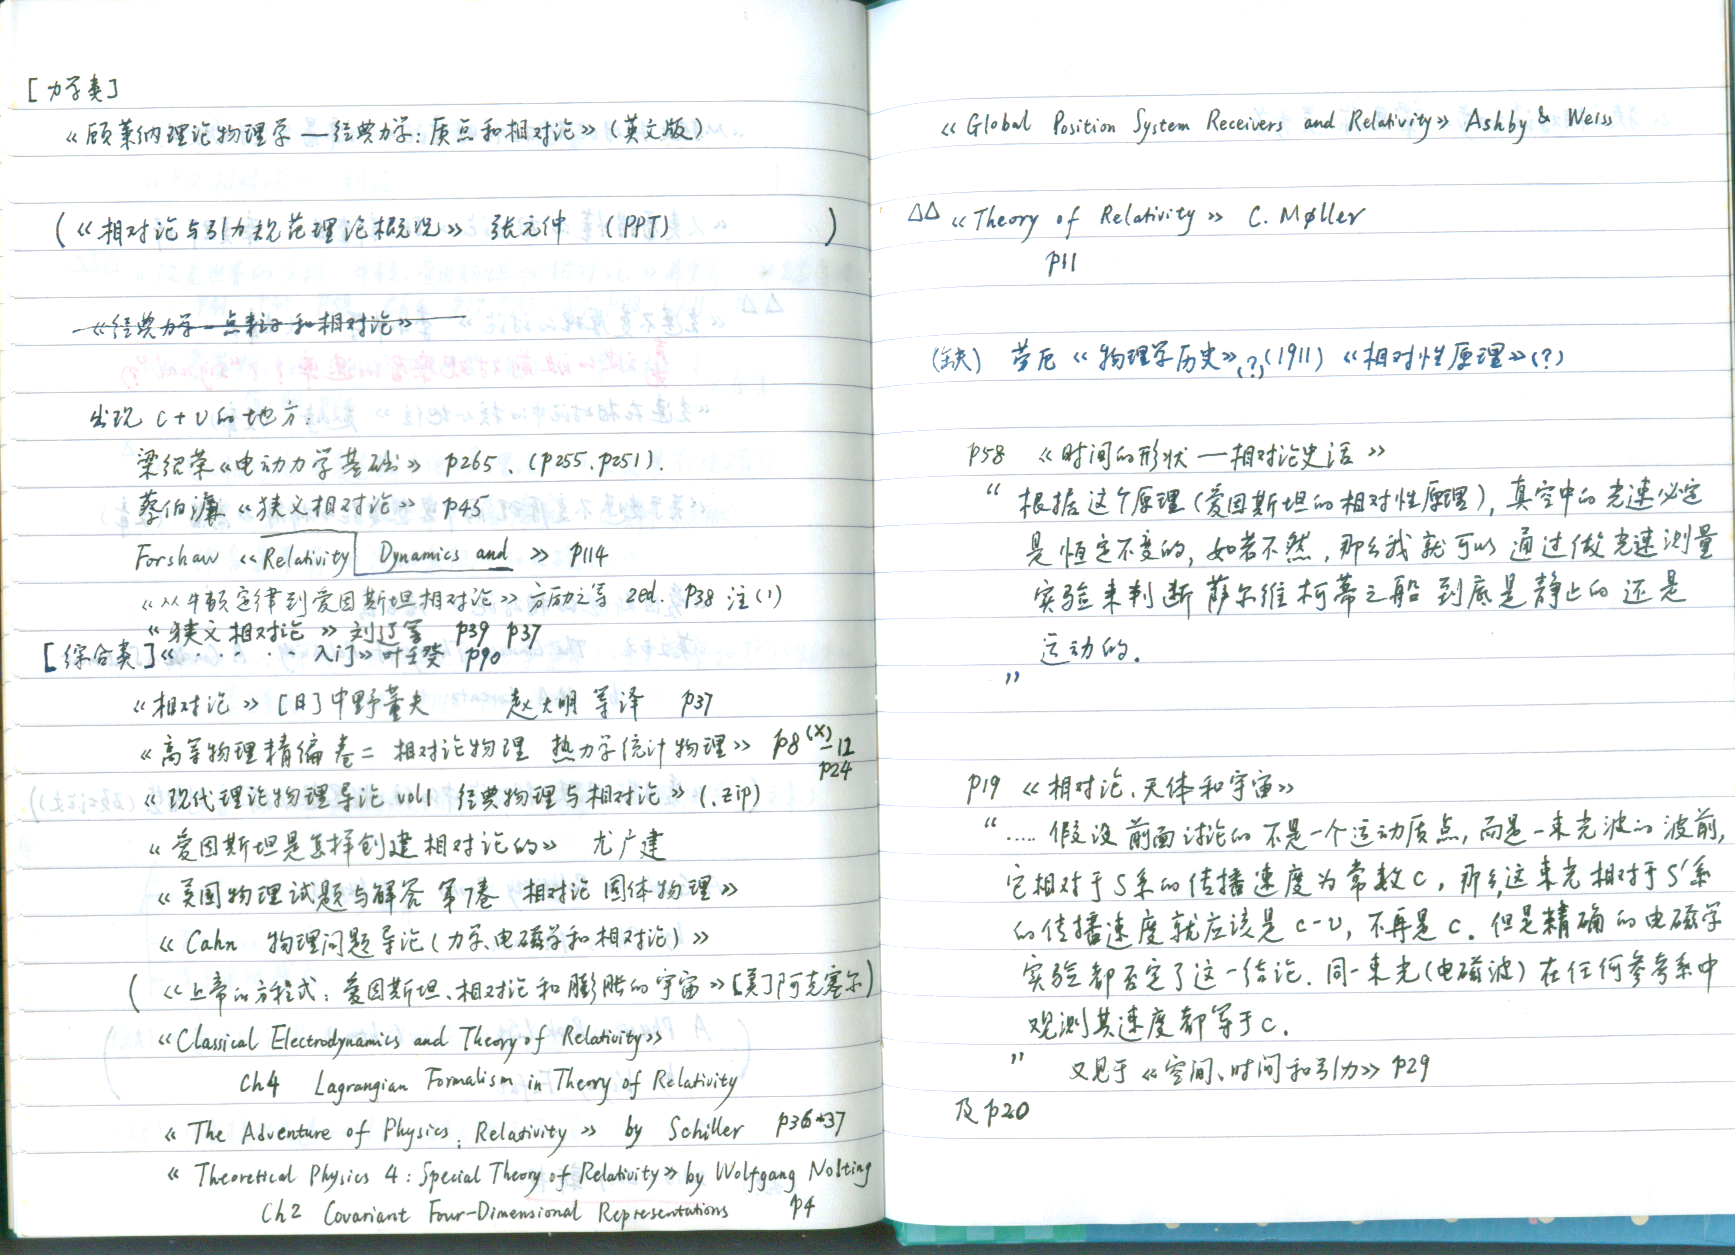 [力学类]
《顾莱纳理论物理学—经典力学:质点和相对论》(英文版)
(《相对论与引力规范理论概况》 张元仲 (PPT) )
《经典力学—点粒子和相对论》
出现 c+v 的地方:
梁绍荣《电动力学基础》 p265、(p255、p251).
蔡伯濂《狭义相对论》 p45
Forshaw 《Relativity Dynamics and 》 p114
《从牛顿定律到爱因斯坦相对论》方励之等 2ed. p38 注(1)
《狭义相对论》刘辽等 p39 p37
[综合类]《· · · 入门》叶壬癸 p90
《相对论》[日]中野董夫 赵大明 等译 p37
《高等物理精编 卷二 相对论物理 热力学统计物理》 p8(X)—12
p24
《现代理论物理导论 vol1 经典物理与相对论》(.zip)
《爱因斯坦是怎样创建相对论的》 尤广建
《美国物理试题与解答 第7卷 相对论 固体物理》
《Cahn 物理问题导论(力学、电磁学和相对论)》
(《上帝的方程式:爱因斯坦、相对论和膨胀的宇宙》[美]阿克塞尔)
《Classical Electrodynamics and Theory of Relativity》
Ch4 Lagrangian Formalism in Theory of Relativity
《The Adventure of Physics: Relativity》 by Schiller p36~37
《Theoretical Physics 4: Special Theory of Relativity》by Wolfgang Nolting
Ch2 Covariant Four-Dimensional Representations p4
《Global Position System Receivers and Relativity》 Ashby & Weiss
△△《Theory of Relativity》 C. Møller
p11
(缺) 劳厄《物理学历史》(?)(1911)《相对性原理》(?)
p58 《时间的形状—相对论史话》
“根据这个原理(爱因斯坦的相对性原理),真空中的光速必定
是恒定不变的,如若不然,那么我就可以通过做光速测量
实验来判断萨尔维柯蒂之船到底是静止的还是
运动的.
”
p19 《相对论、天体和宇宙》
“..... 假设前面讨论的不是一个运动质点,而是一束光波的波前,
它相对于S系的传播速度为常数c,那么,这束光相对于S'系
的传播速度就应该是c-v,不再是c.但是精确的电磁学
实验都否定了这一结论.同一束光(电磁波)在任何参考系中
观测其速度都等于c.
” 又见于《空间、时间和引力》p29
及p20